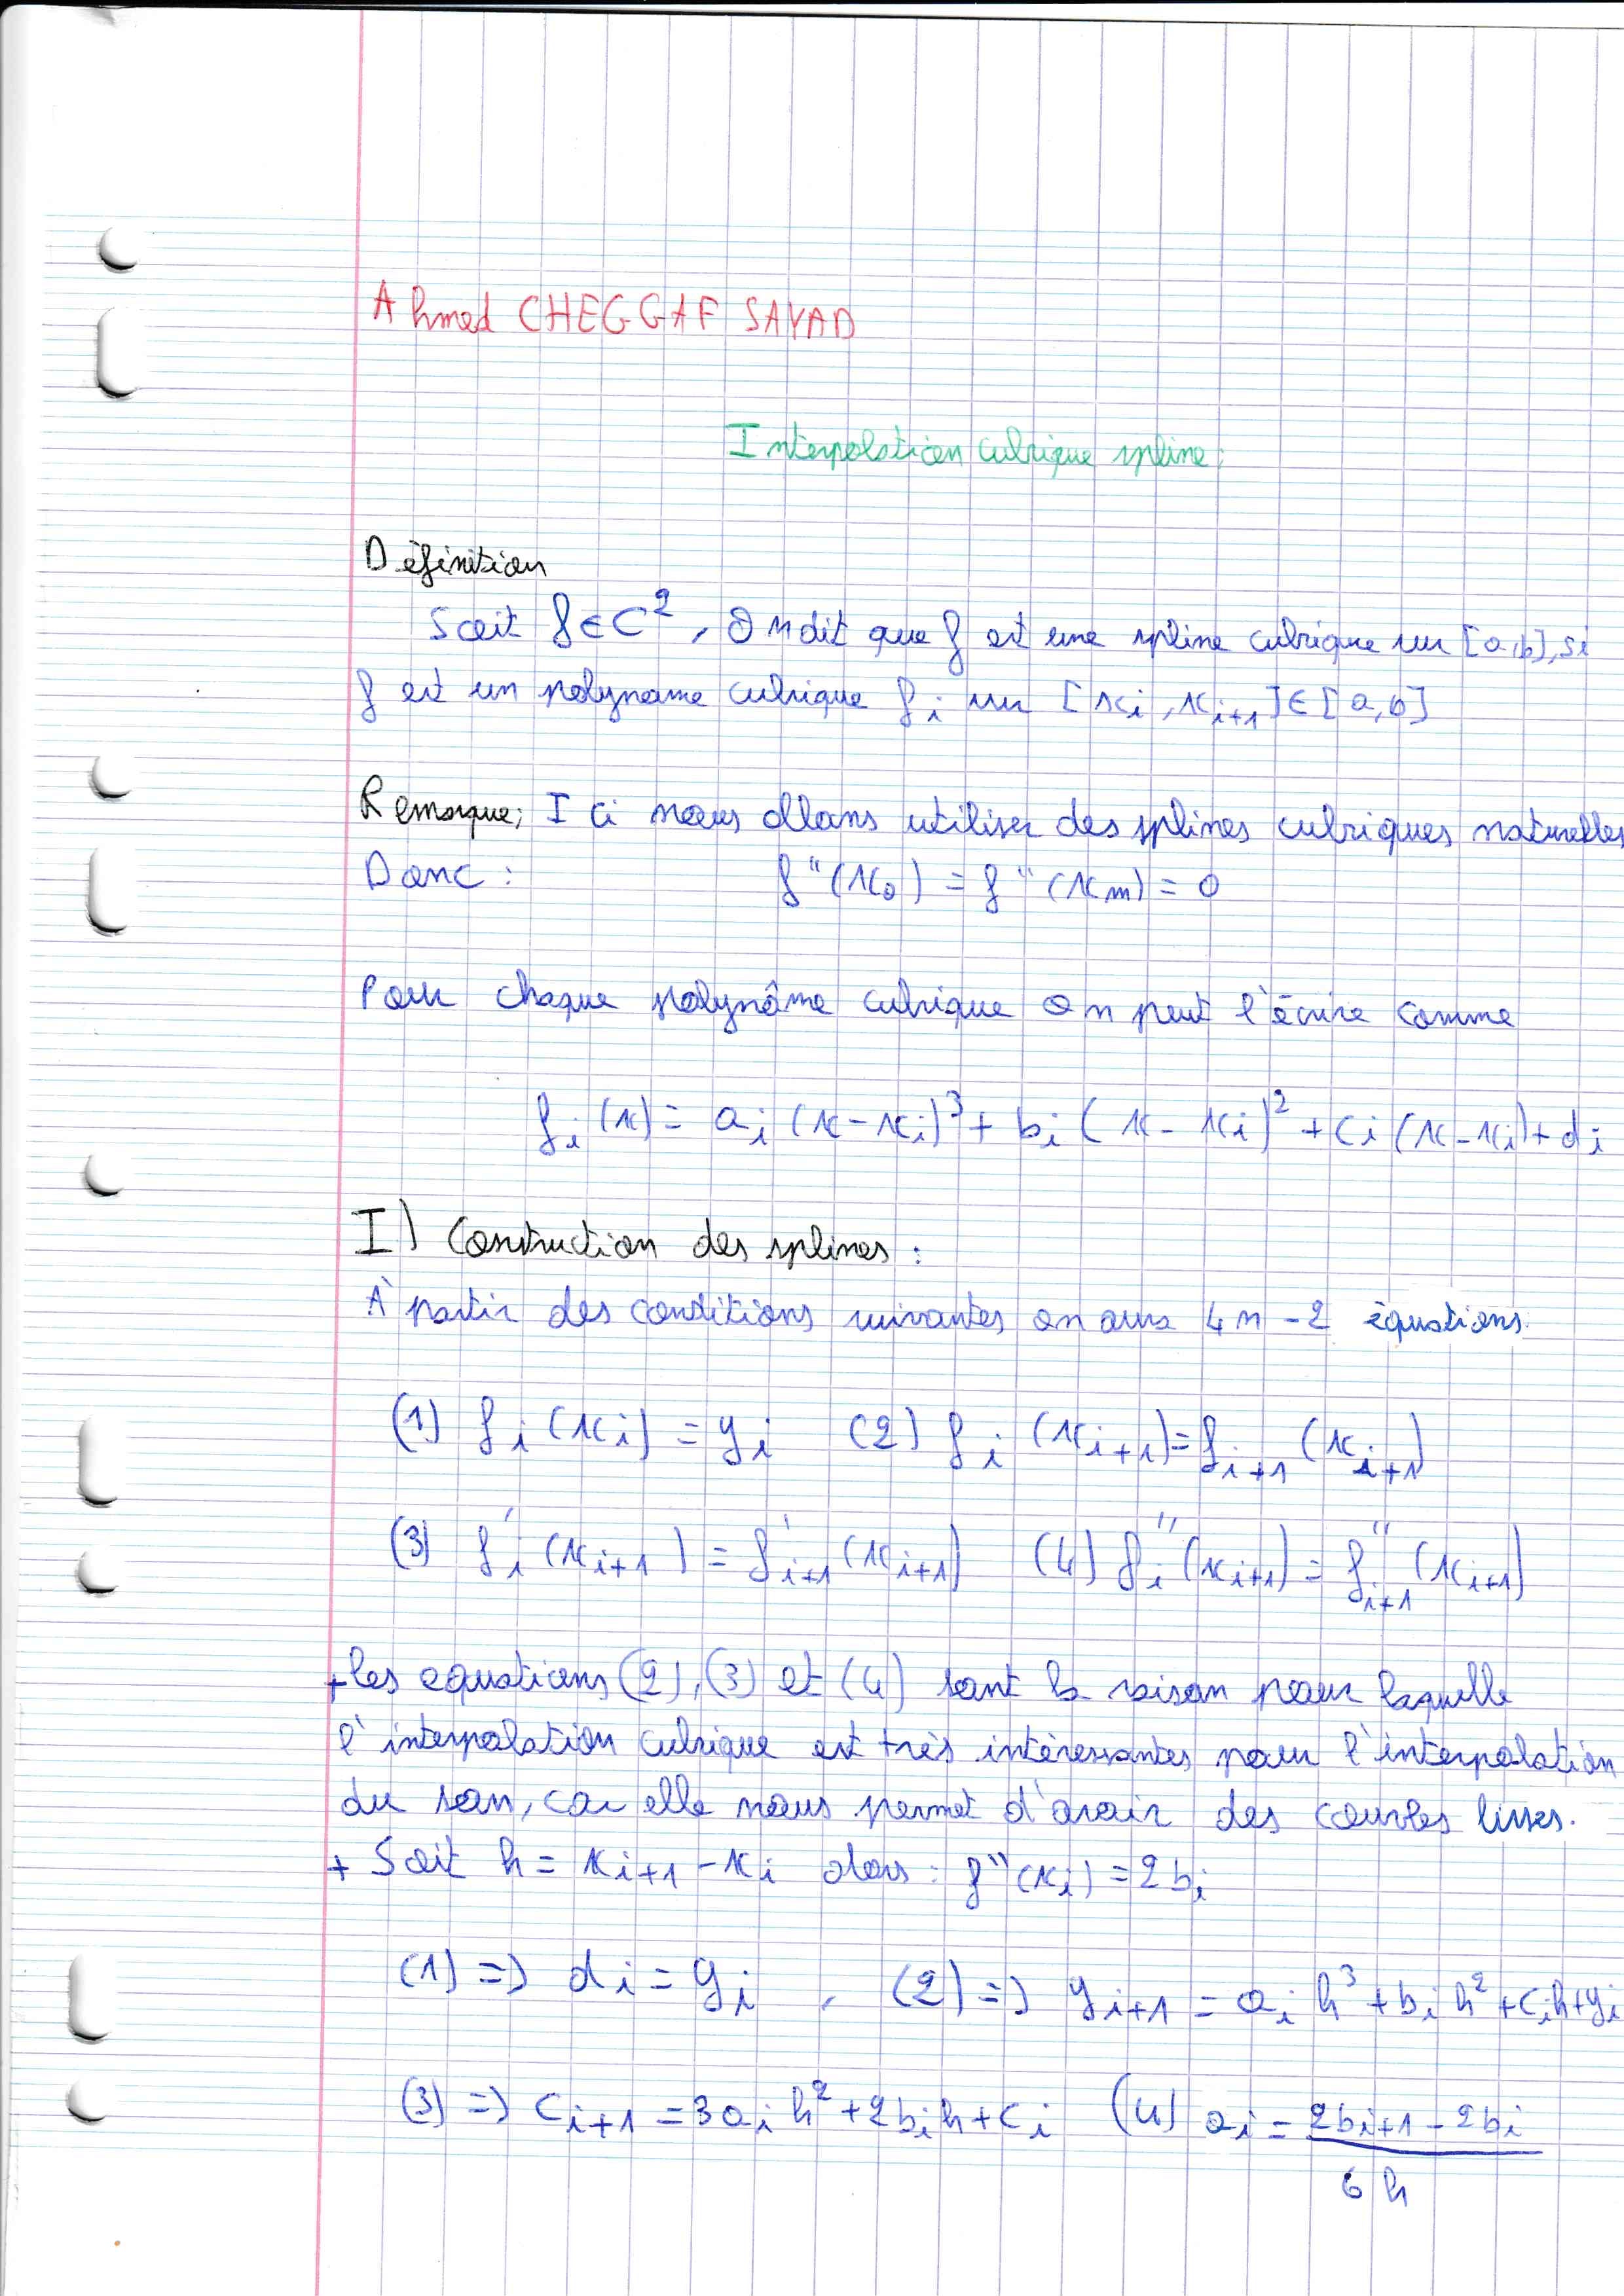 Ahmed CHEGGAF SAYAD
Interpolation cubique spline:
Définition
Soit f∈C², On dit que f est une spline cubique sur [a,b], si
f est un polynome cubique fᵢ sur [xᵢ, xᵢ₊₁]∈[a,b]
Remarque; Ici nous allons utiliser des splines cubriques naturelles
Donc: f"(x₀) = f"(xₘ) = 0
Pour chaque polynôme cubique on peut l'écrire comme
fᵢ(x) = aᵢ(x-xᵢ)³ + bᵢ(x-xᵢ)² + cᵢ(x-xᵢ) + dᵢ
I) Construction des splines:
À partir des conditions suivantes on aura 4n-2 équations.
(1) fᵢ(xᵢ) = yᵢ (2) fᵢ(xᵢ₊₁) = fᵢ₊₁(xᵢ₊₁)
(3) f'ᵢ(xᵢ₊₁) = f'ᵢ₊₁(xᵢ₊₁) (4) f"ᵢ(xᵢ₊₁) = f"ᵢ₊₁(xᵢ₊₁)
+ les equations (2), (3) et (4) sont la raison pour laquelle
l'interpolation cubrique est très intéressantes pour l'interpolation
du son, car elle nous permet d'avoir des courbes lisses.
+ Soit h = xᵢ₊₁ - xᵢ alors: f"(xᵢ) = 2bᵢ
(1) => dᵢ = yᵢ , (2) => yᵢ₊₁ = aᵢh³ + bᵢh² + cᵢh + yᵢ
(3) => cᵢ₊₁ = 3aᵢh² + 2bᵢh + cᵢ (4) aᵢ = 2bᵢ₊₁ - 2bᵢ
6h